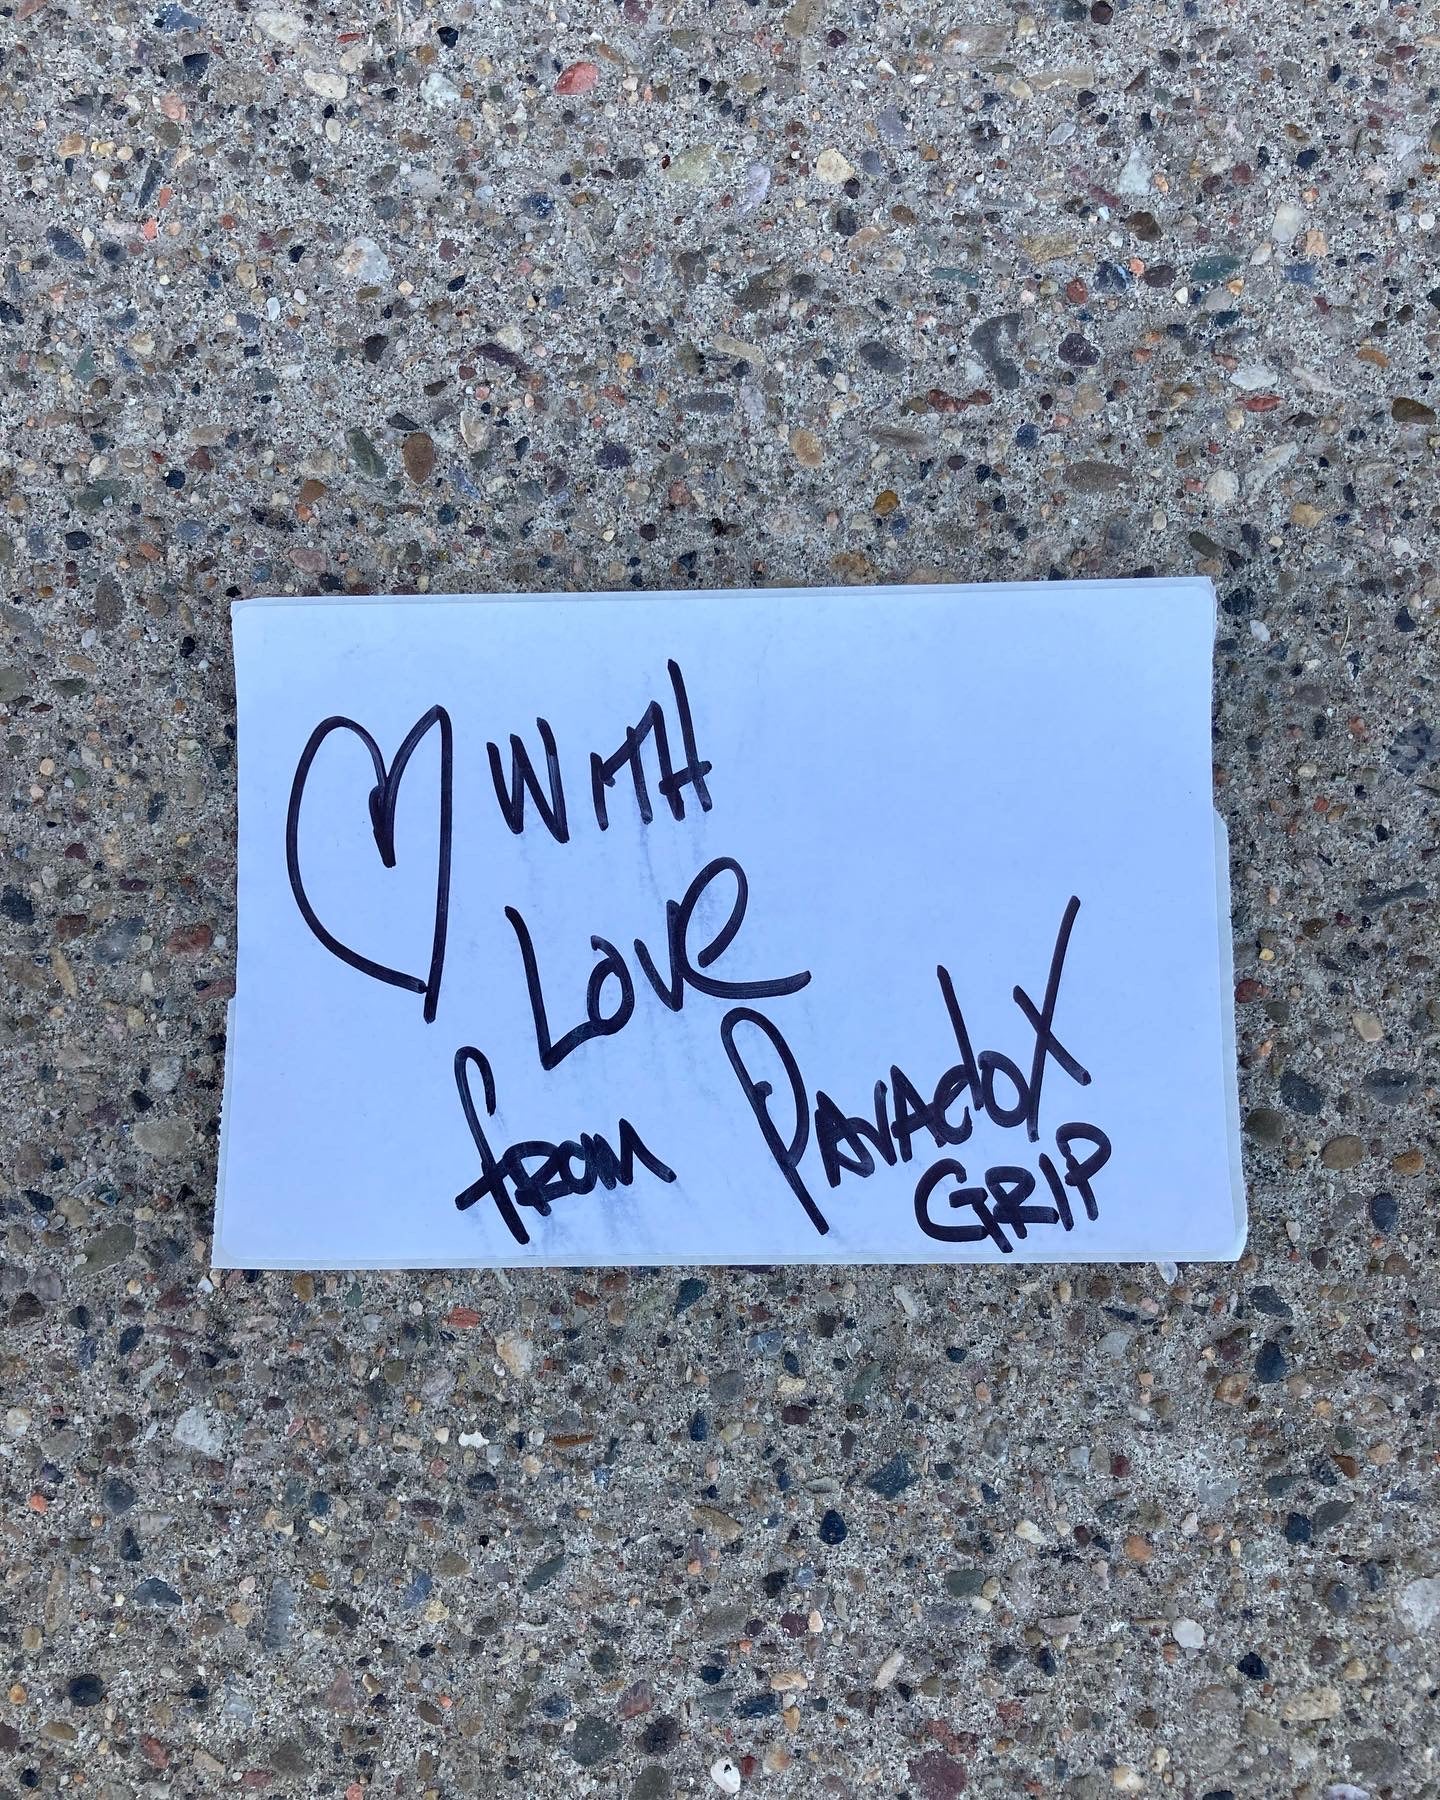 WITH
LOVE
from PARAdOX
GRIP